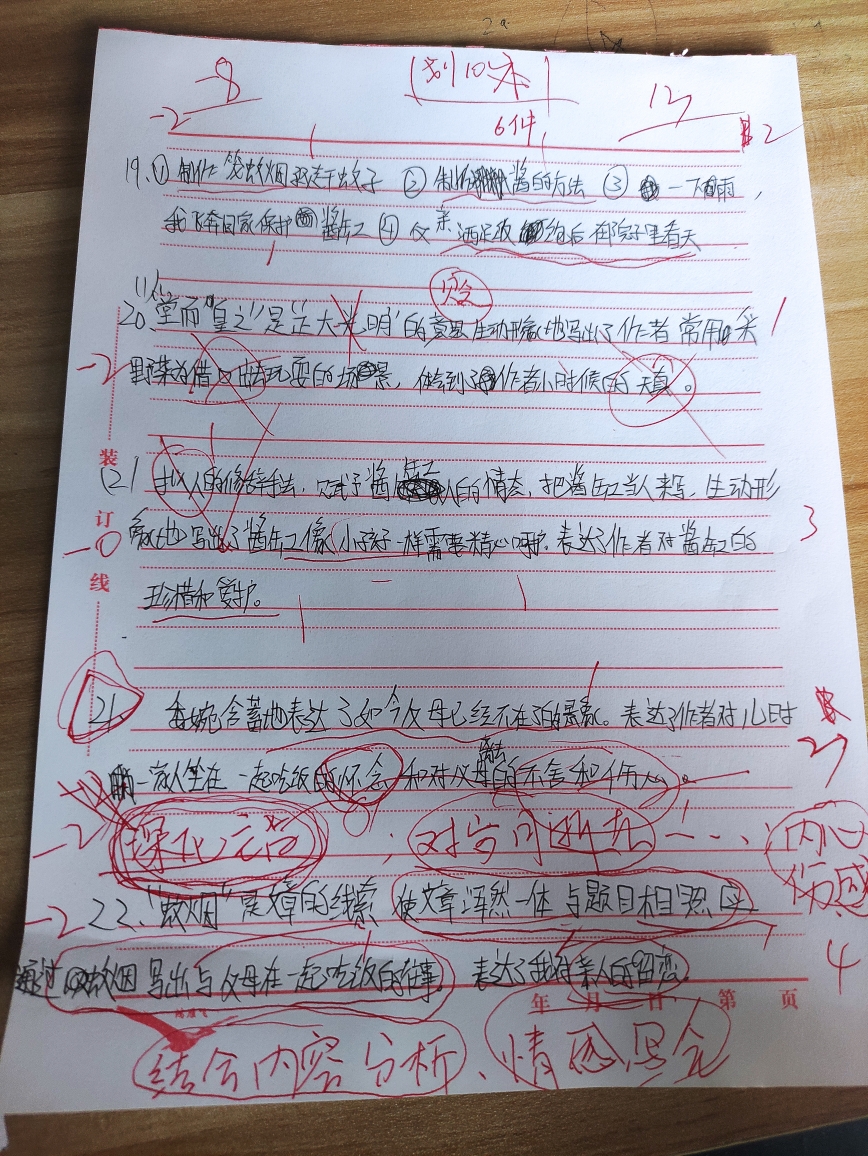 -8
划10本
12
-2
6件
2
19、① 制作 蚊烟 赶走蚊子 ② 制作 酱的方法 ③ 一下雨,
我飞奔回家保护 酱缸 ④ 父亲 酒足饭饱后 在院子里看天
贬
20、(1)“堂而皇之”是正大光明的意思 生动形象地写出了作者常用采 1
-2 野菜为借口出去玩耍的场景,体会到了作者小时候的天真。
装
(2) 拟人的修辞手法,赋予酱缸人的情态,把酱缸当人来写,生动形
订
-0 象地写出了酱缸像小孩子一样需要精心呵护,表达了作者对酱缸的 3
线
珍惜和爱护。
21、委婉含蓄地表达了如今父母已经不在了的景象。表达了作者对儿时
一家人坐在一起吃饭的怀念和对父母离去的不舍和伤心。 2
-2 深化 对 内心
伤感
-2 22、“蚊烟”是文章的线索 使文章浑然一体 与题目相照应
通过 蚊烟 写出与父母在一起吃饭的往事 表达了我对亲人的留恋 4
年 月 日 第 页
结合内容分析、情感